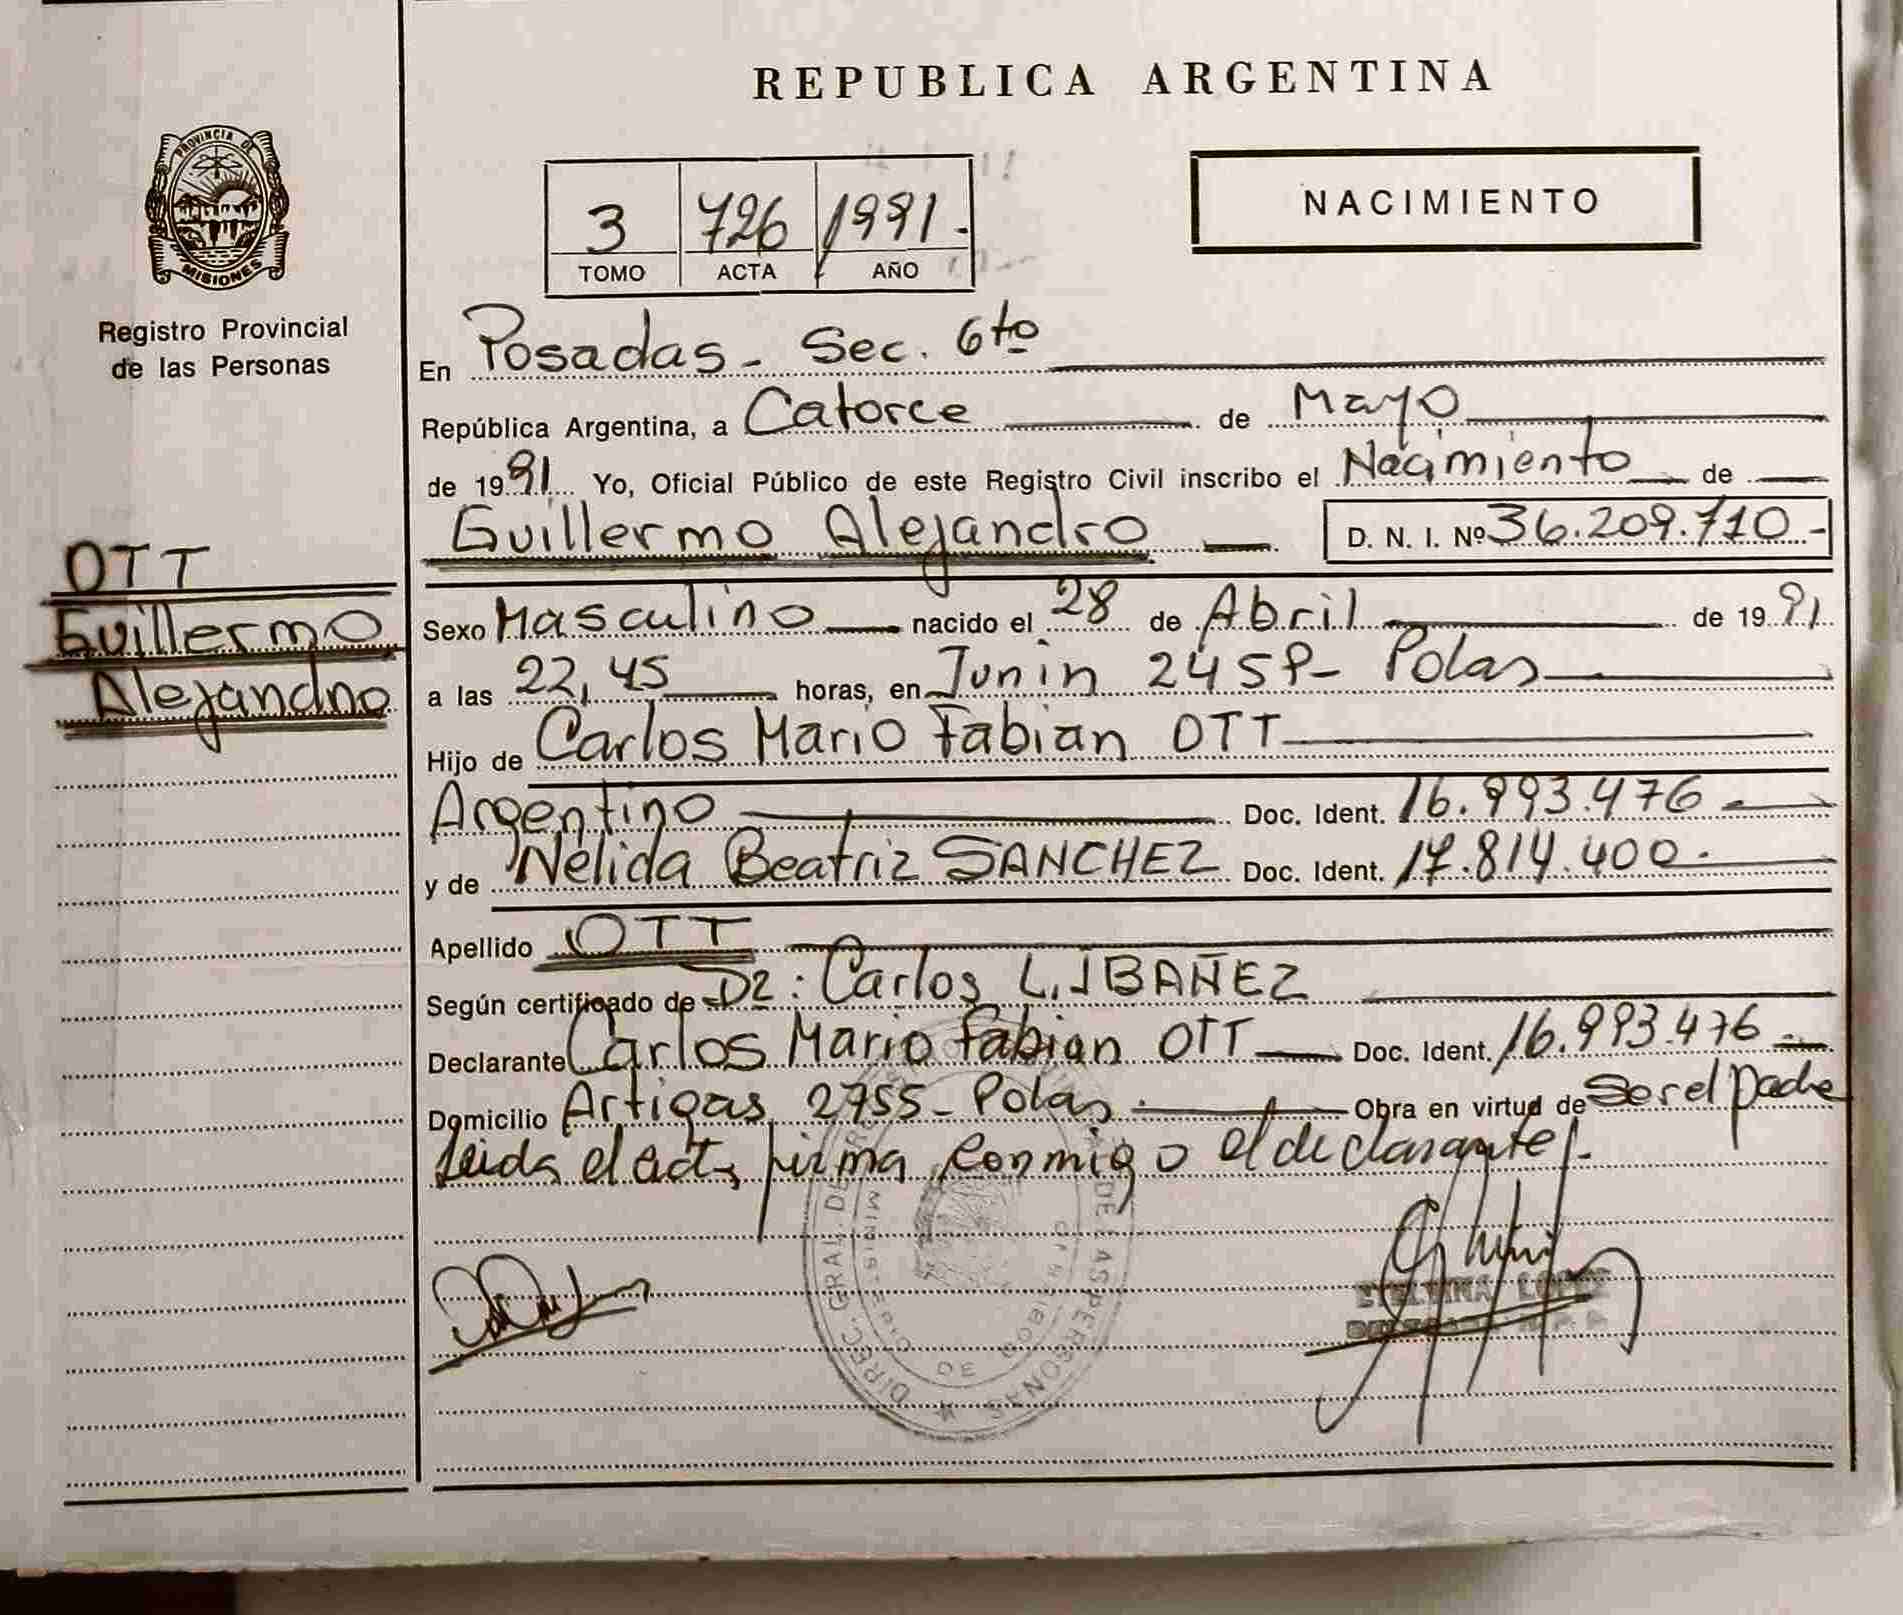 REPUBLICA ARGENTINA
PROVINCIA DE
MISIONES
Registro Provincial
de las Personas
3 726 1991.-
TOMO ACTA AÑO
NACIMIENTO
En Posadas - Sec. 6to
República Argentina, a Catorce de Mayo
de 1991 Yo, Oficial Público de este Registro Civil inscribo el Nacimiento de
Guillermo Alejandro D. N. I. Nº 36.209.710 -
OTT
Guillermo
Alejandro
Sexo Masculino nacido el 28 de Abril de 1991
a las 22,45 horas, en Junin 245 - Pdas
Hijo de Carlos Mario Fabian OTT
Argentino Doc. Ident. 16.993.476 -
y de Nelida Beatriz SANCHEZ Doc. Ident. 17.814.400.
Apellido OTT
Según certificado de Dr: Carlos L. IBAÑEZ
Declarante Carlos Mario Fabian OTT Doc. Ident. 16.993.476 -
Domicilio Artigas 2755 - Pdas. Obra en virtud de Ser el padre
Leida el acta firma conmigo el declarante.-
DIREC. GRAL. DE LAS PERSONAS
MINISTERIO DE GOBIERNO